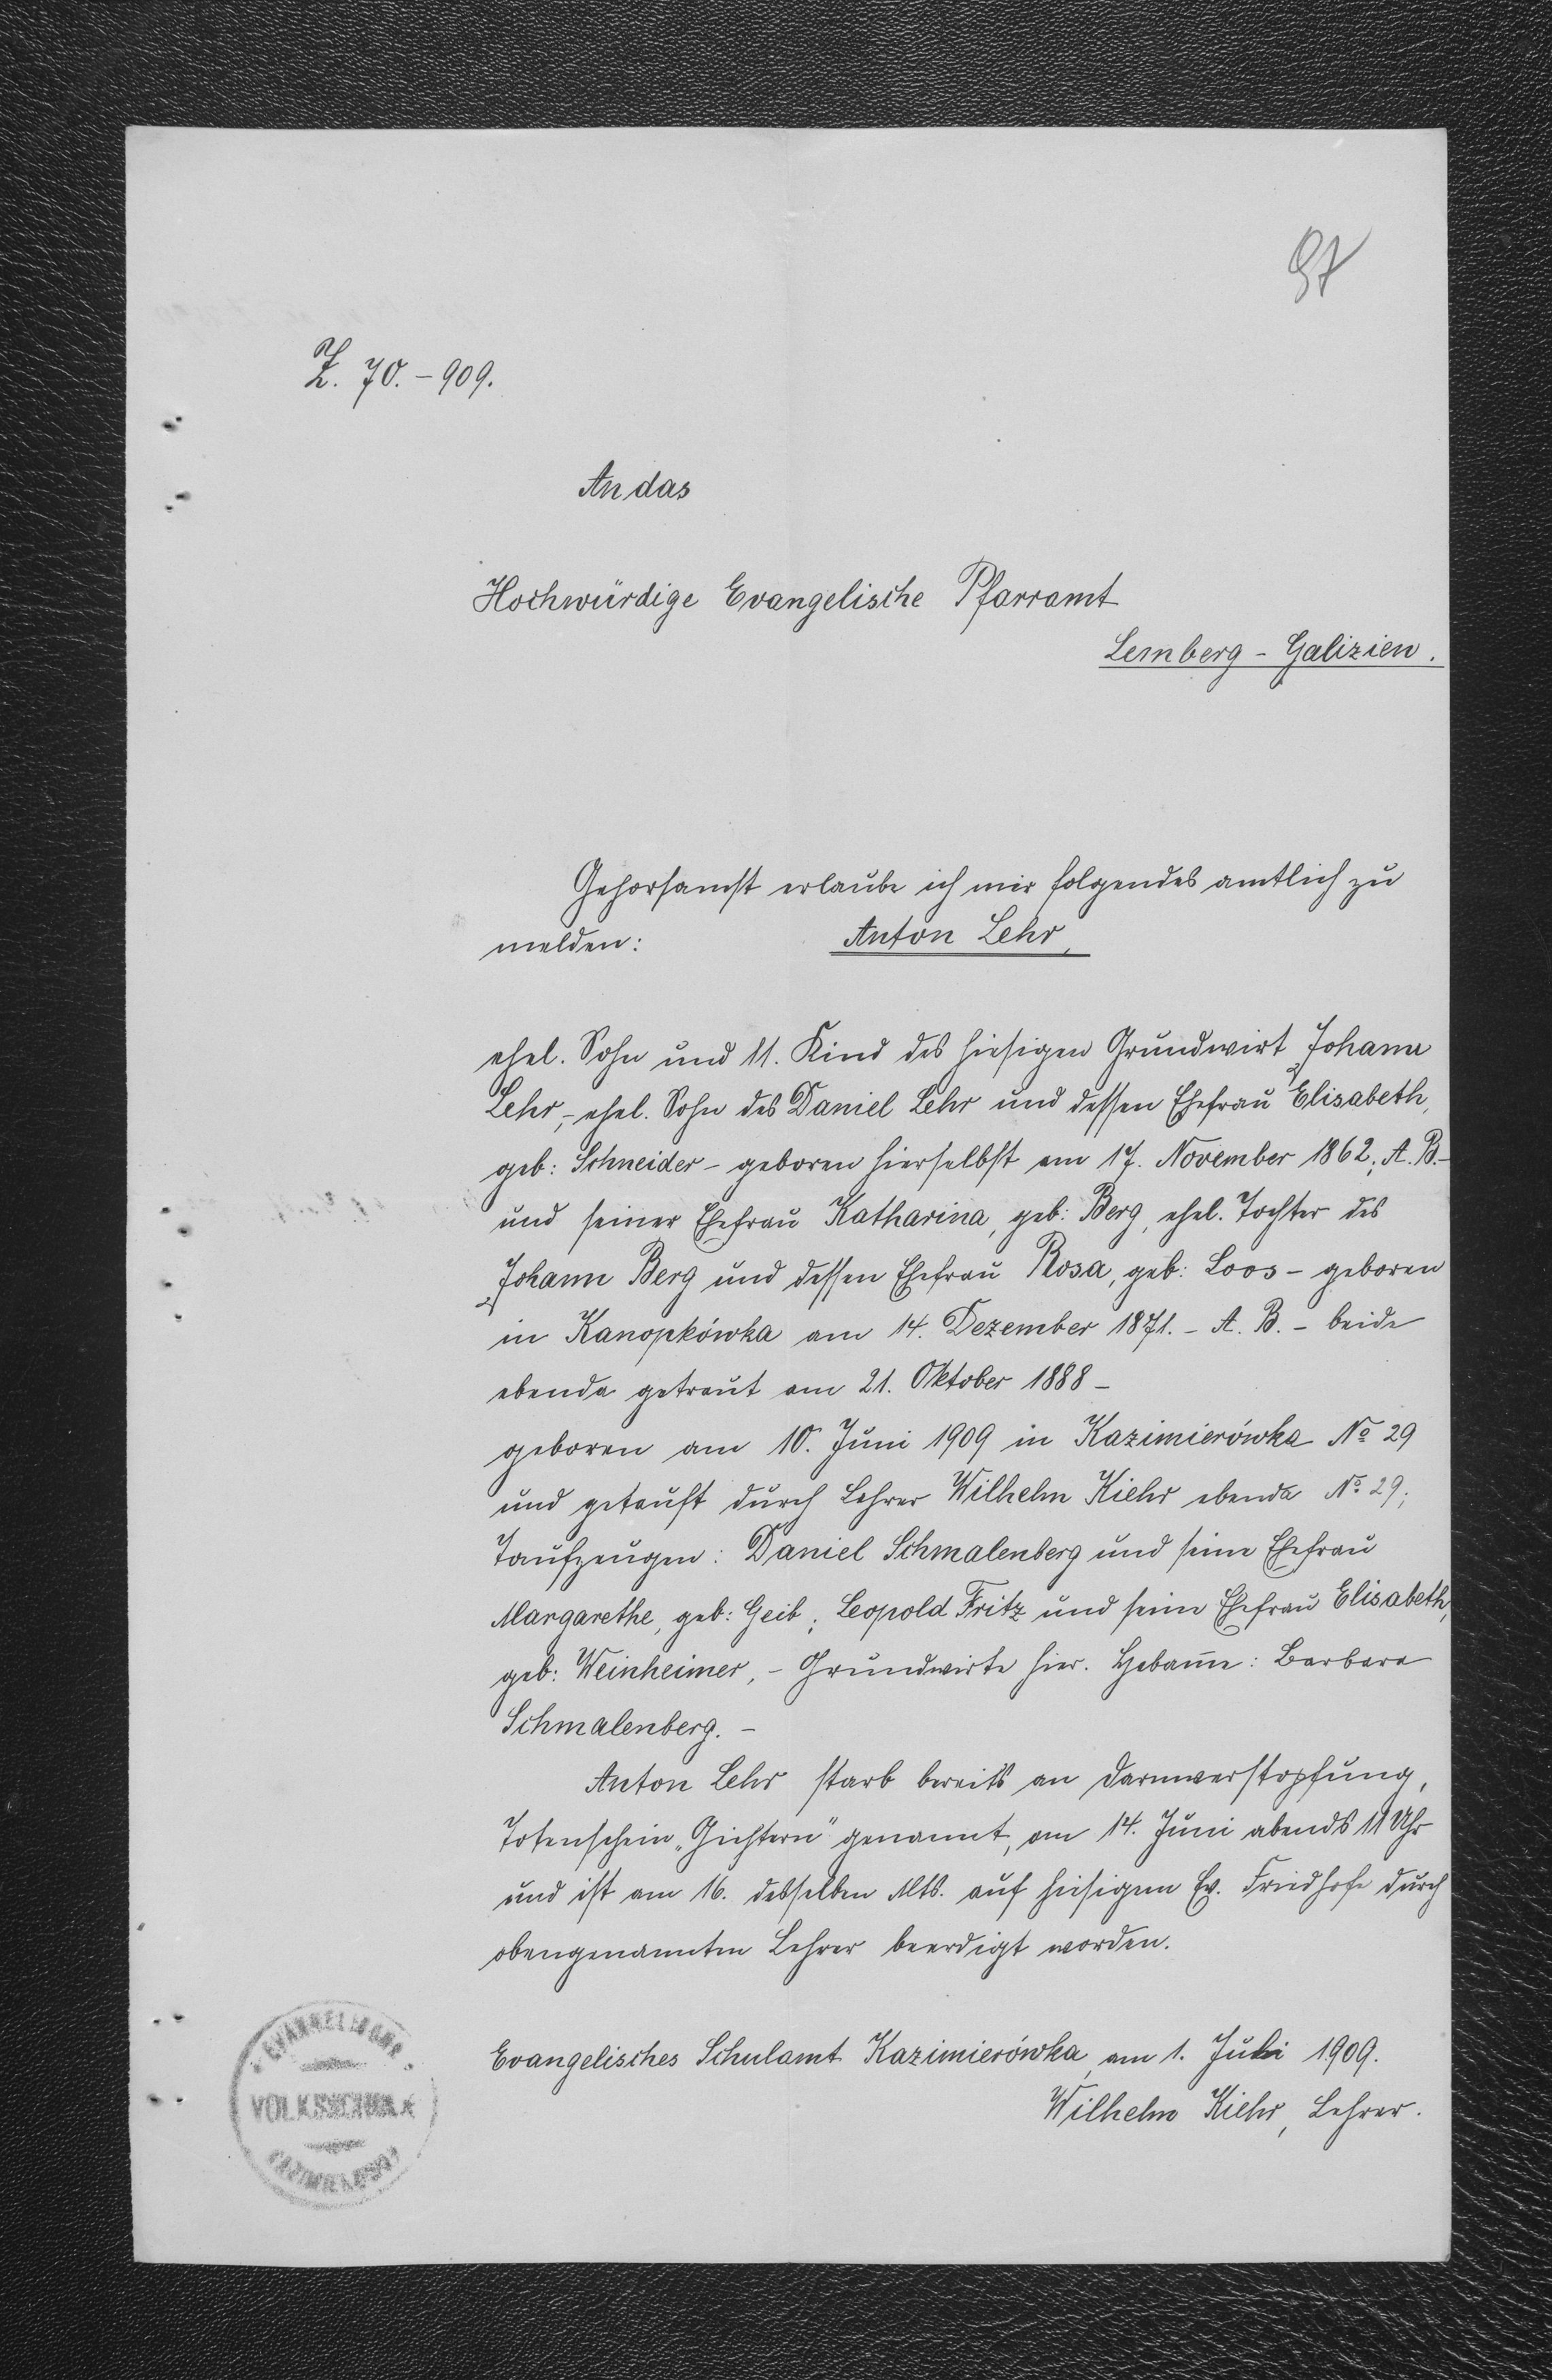 97
Z. 70. – 909.
An das
Hochwürdige Evangelische Pfarramt
Lemberg – Galizien.
Gehorsamst erlaube ich mir folgendes amtlich zu
melden: Anton Lehr,
ehel. Sohn und 11. Kind des hiesigen Grundwirt Johann
Lehr, – ehel. Sohn des Daniel Lehr und dessen Ehefrau Elisabeth,
geb: Schneider – geboren hierselbst am 17. November 1862; A. B. –
und seiner Ehefrau Katharina, geb: Berg, ehel. Tochter des
Johann Berg und dessen Ehefrau Rosa, geb: Loos – geboren
in Kanopkówka am 14. Dezember 1871. – A. B. – beide
ebenda getraut am 21. Oktober 1888 –
geboren am 10. Juni 1909 in Kazimierówka No 29
und getauft durch Lehrer Wilhelm Kiehr ebenda No 29;
Taufzeugen: Daniel Schmalenberg und seine Ehefrau
Margarethe, geb: Geib; Leopold Fritz und seine Ehefrau Elisabeth,
geb: Weinheimer, – Grundwirte hier. Hebam̅e: Barbara
Schmalenberg. –
Anton Lehr starb bereits an Darmverstopfung,
Totenschein „Gichtern" genannt, am 14. Juni abends 11 Uhr
und ist am 16. desselben Mts. auf hiesigem Ev. Friedhofe durch
obengenannten Lehrer beerdigt worden.
Evangelisches Schulamt Kazimierówka, am 1. Juli 1909.
Wilhelm Kiehr, Lehrer.
VOLKSSCHULE